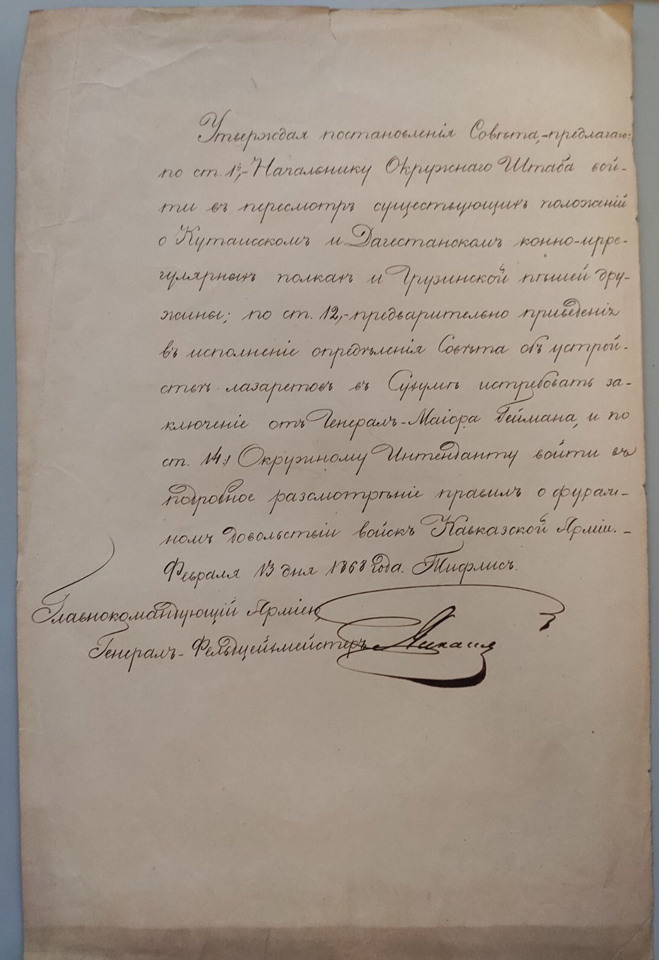 Утверждая постановленія Совѣта,-предлагаю:
по ст. 1й,- Начальнику Окружнаго Штаба вой-
ти въ пересмотръ существующихъ положеній
о Кутаисскомъ и Дагестанскомъ конно-ирре-
гулярныхъ полкахъ и Грузинской пѣшей дру-
жины; по ст. 12,-предварительно приведенія
въ исполненіе опредѣленія Совѣта объ устрой-
ствѣ лазаретовъ въ Сухумѣ истребовать за-
ключеніе отъ Генералъ-Маіора Геймана, и по
ст. 14й Окружному Интенданту войти въ
подробное разсмотрѣніе правилъ о фураж-
номъ довольствіи войскъ Кавказской Арміи.-
Февраля 13 дня 1868 года. Тифлисъ.
Главнокомандующій Арміею,
Генералъ-Фельдцейхмейстеръ Михаилъ